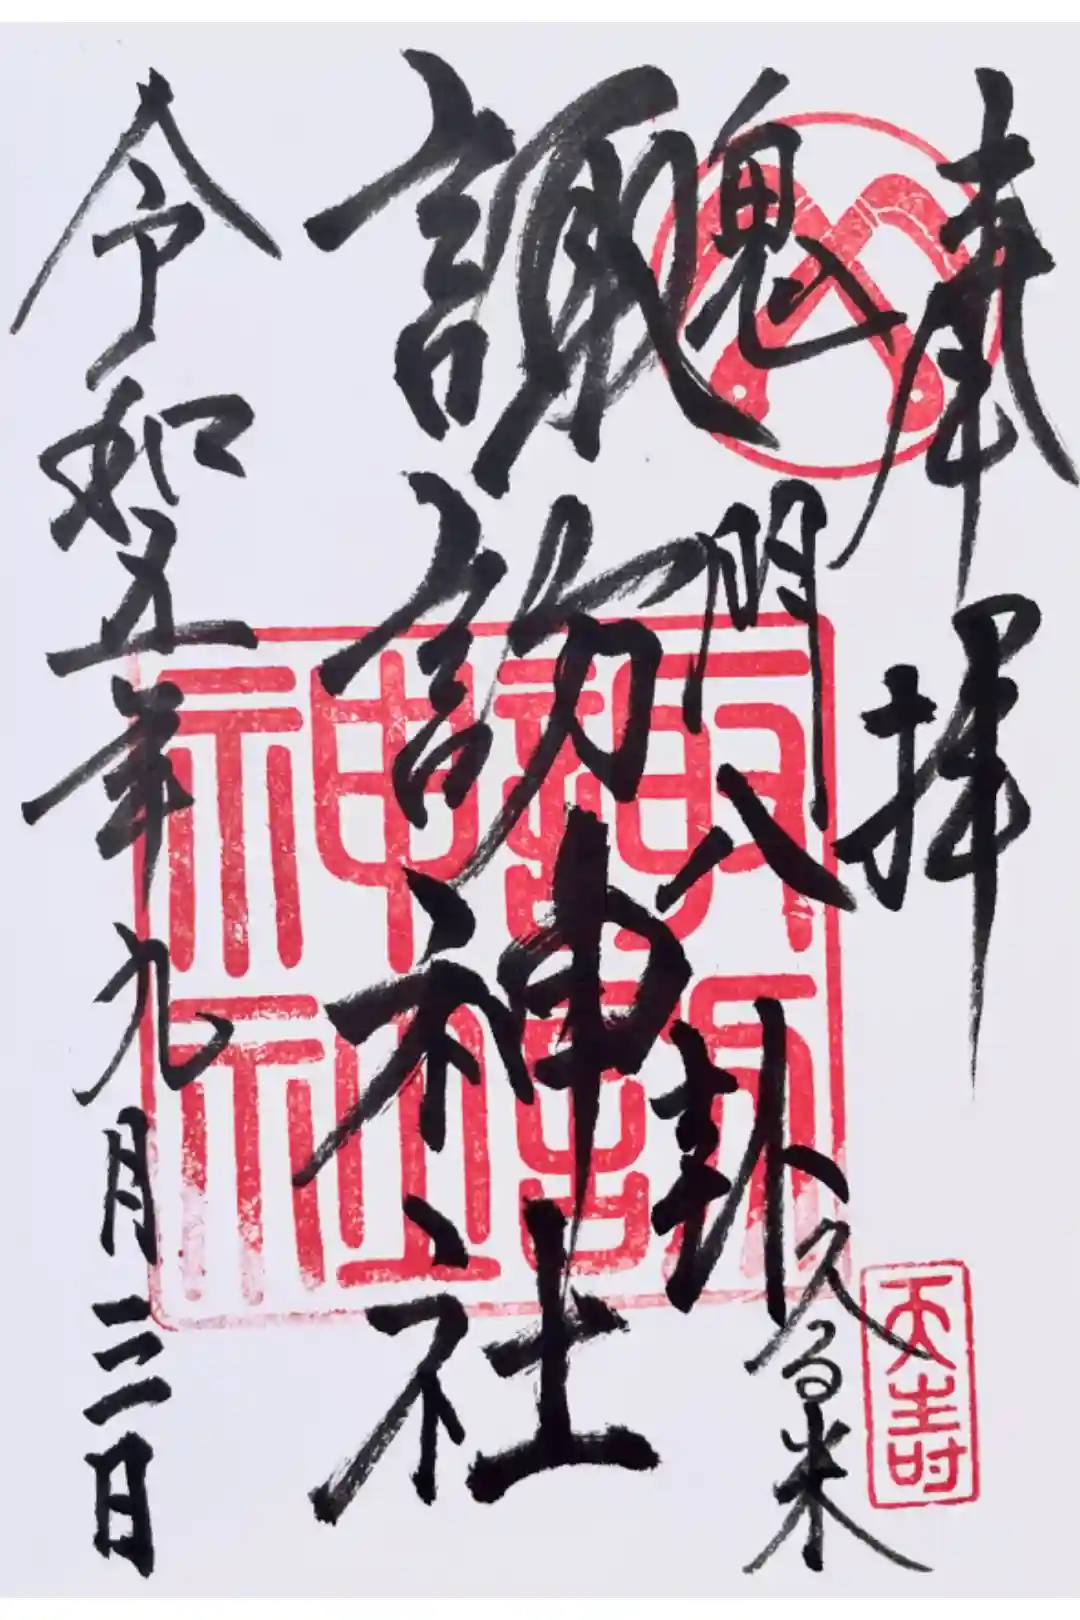 奉拝
鬼門八卦
久留米
諏訪神社
令和五年九月三日
諏訪神社
天壽